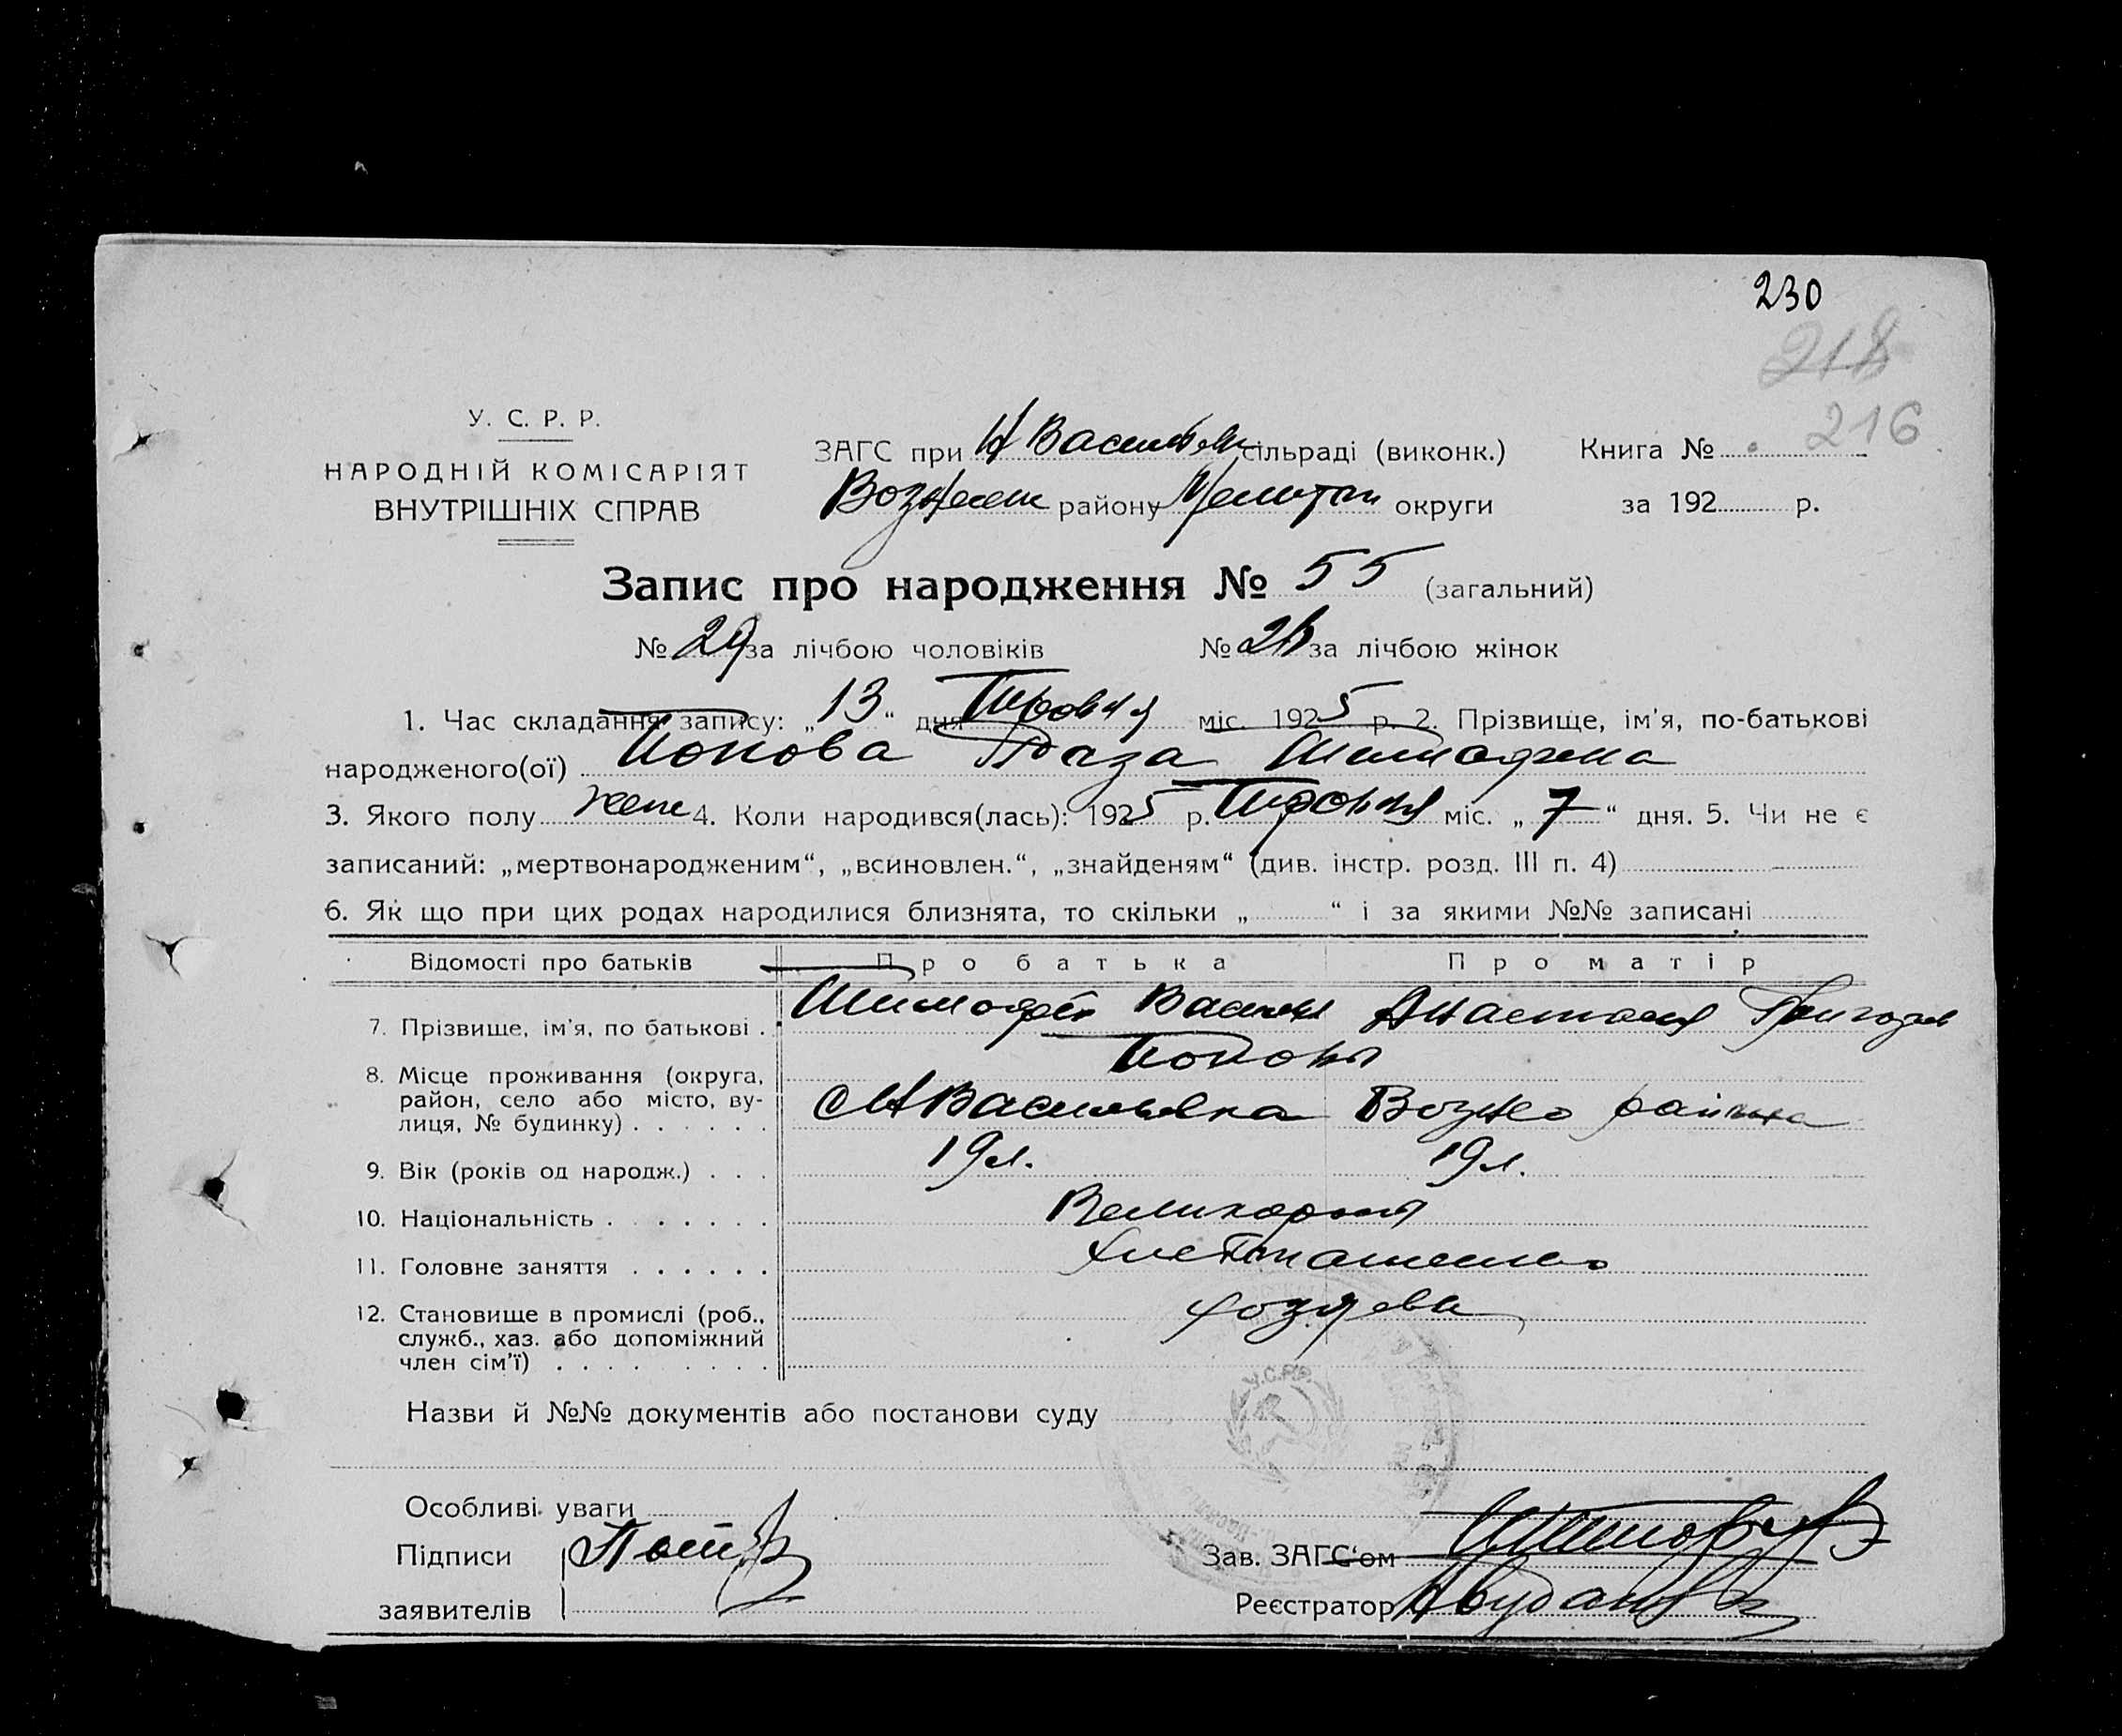 230
218
216
У. С. Р. Р.
НАРОДНІЙ КОМІСАРІЯТ
ВНУТРІШНІХ СПРАВ
ЗАГС при Н Васильев сільраді (виконк.)
Вознесен району Мелитоп округи
Книга №
за 192 р.
Запис про народження № 55 (загальний)
№ 29 за лічбою чоловіків № 26 за лічбою жінок
1. Час складання запису: „ 13 “ дня міс. 1925 р. 2. Прізвище, ім'я, по-батькові
народженого(ої) Попова Раза Тимофеена
3. Якого полу жен 4. Коли народився(лась): 1925 р. міс. „ 7 “ дня. 5. Чи не є
записаний: „мертвонародженим“, „всиновлен.“, „знайденям“ (див. інстр. розд. III п. 4)
6. Як що при цих родах народилися близнята, то скільки „ “ і за якими №№ записані
Відомості про батьків Про батька Про матір
7. Прізвище, ім'я, по батькові . Тимофей Васильев Анастасия Григорев
Поповы
8. Місце проживання (округа,
район, село або місто, ву-
лиця, № будинку) . . . . . . Н Васильевка Возне района
9. Вік (років од народж.) . . . 19 л. 19 л.
10. Національність . . . . . . . Великороссы
11. Головне заняття . . . . . . Хлебопашество
12. Становище в промислі (роб.,
служб., хаз. або допоміжний
член сім'ї) . . . . . . . . . хозяева
Назви й №№ документів або постанови суду
У.С.Р.Р.
Особливі уваги
Підписи
заявителів
Зав. ЗАГС'ом
Реєстратор